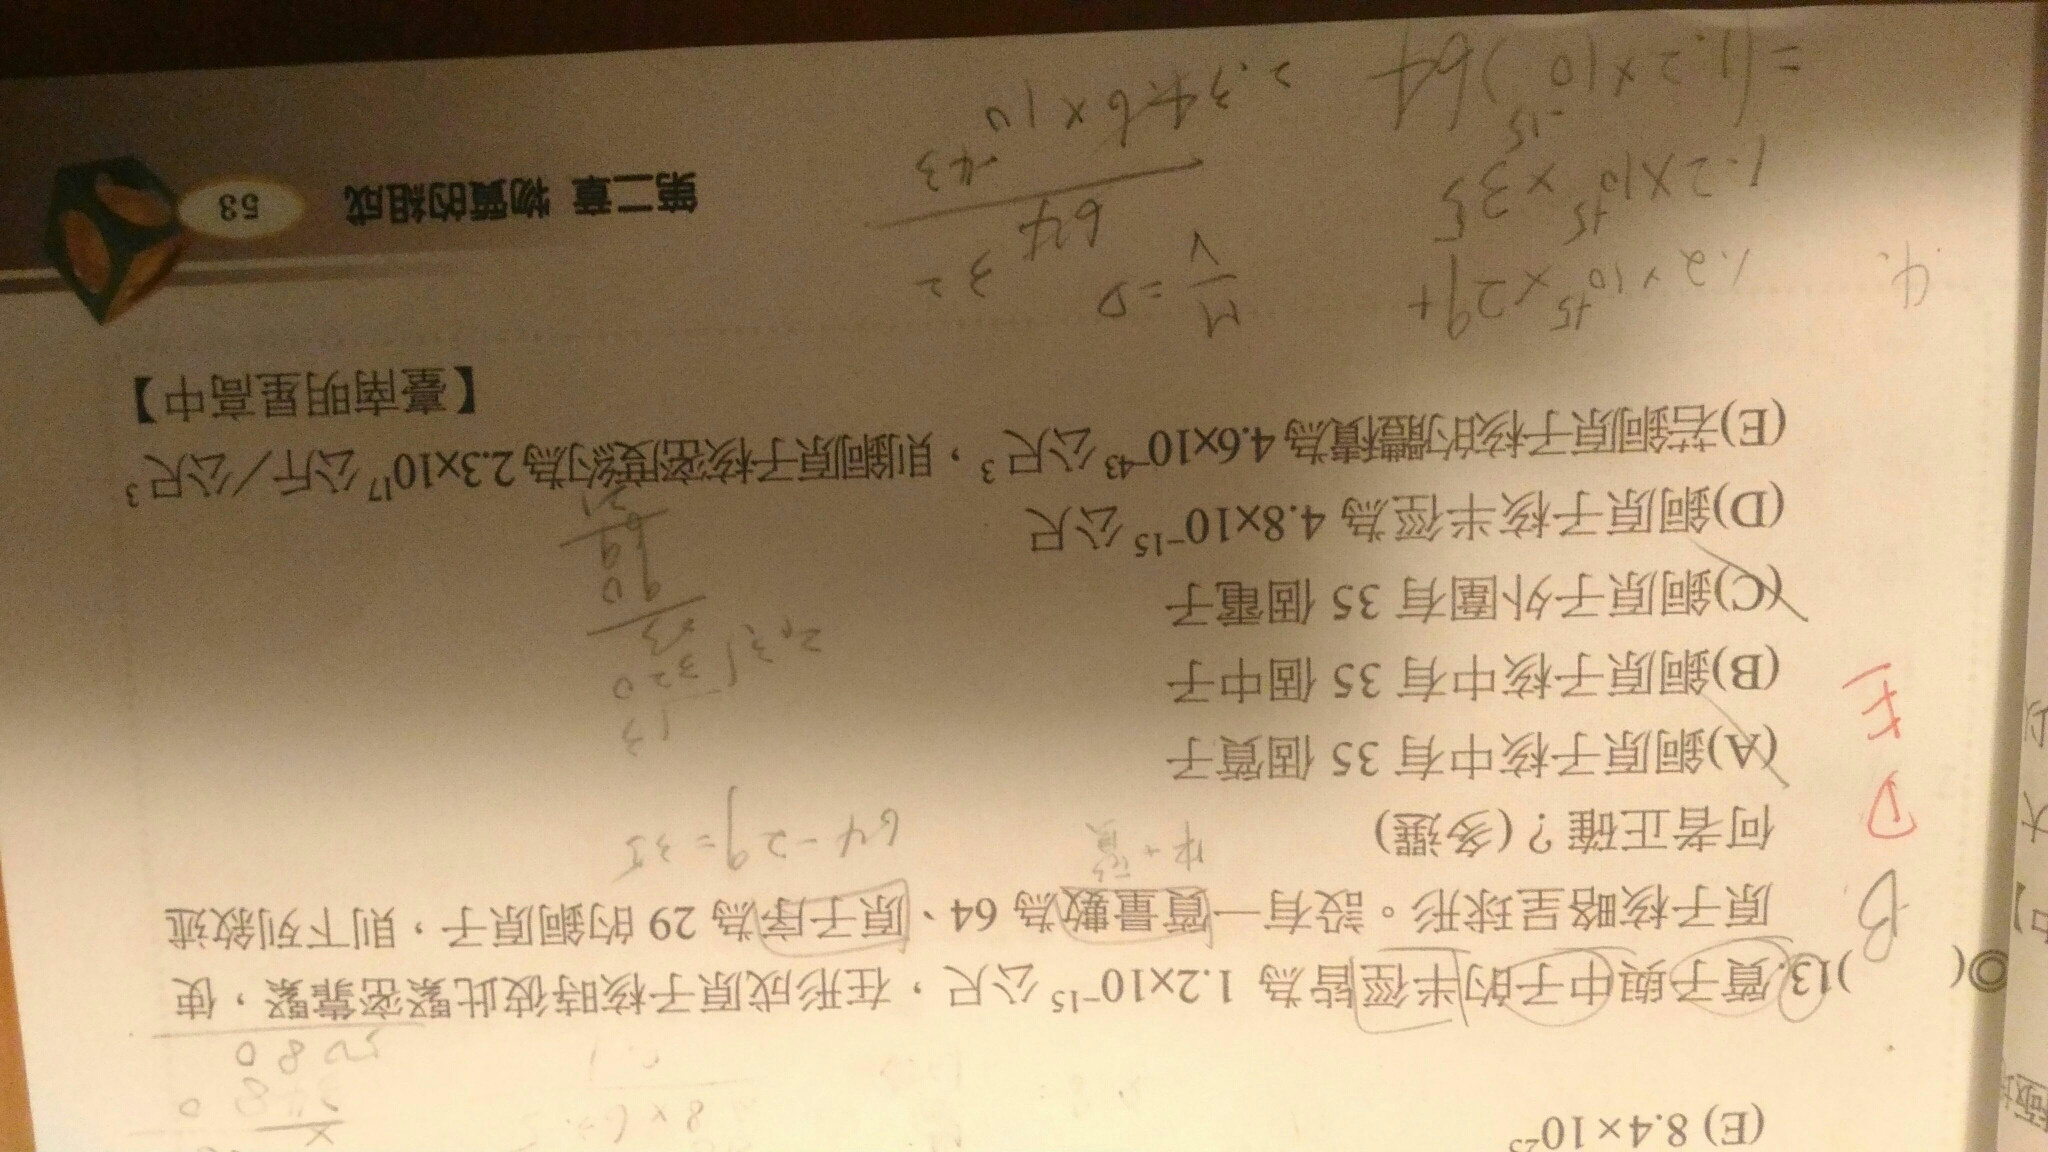 (E) 8.4×10²⁵
8×6.
5080
◎( )13.質子與中子的半徑皆為 1.2×10⁻¹⁵ 公尺，在形成原子核時彼此緊密靠緊，使
原子核略呈球形。設有一質量數為 64、原子序為 29 的銅原子，則下列敘述
何者正確？(多選)
中+質
64-29=35
B
D
E
(A)銅原子核中有 35 個質子
(B)銅原子核中有 35 個中子
(C)銅原子外圍有 35 個電子
(D)銅原子核半徑為 4.8×10⁻¹⁵ 公尺
(E)若銅原子核的體積為 4.6×10⁻⁴³ 公尺³，則銅原子核密度約為 2.3×10¹⁷ 公斤／公尺³
【臺南明星高中】
13
2.3
320
23
90
69
21
4.
1.2×10⁻¹⁵×29+
1.2×10⁻¹⁵×35
=(1.2×10⁻¹⁵)64
M/V=D
32
64
4.6×10⁻⁴³
2.3
第二章 物質的組成
53